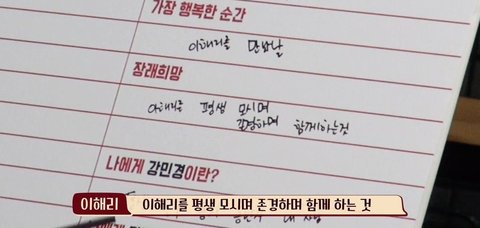 가장 행복한 순간
이해리를 만난날
장래희망
이해리를 평생 모시며
존경하며 함께하는것
나에게 강민경이란?
이해리 이해리를 평생 모시며 존경하며 함께 하는 것